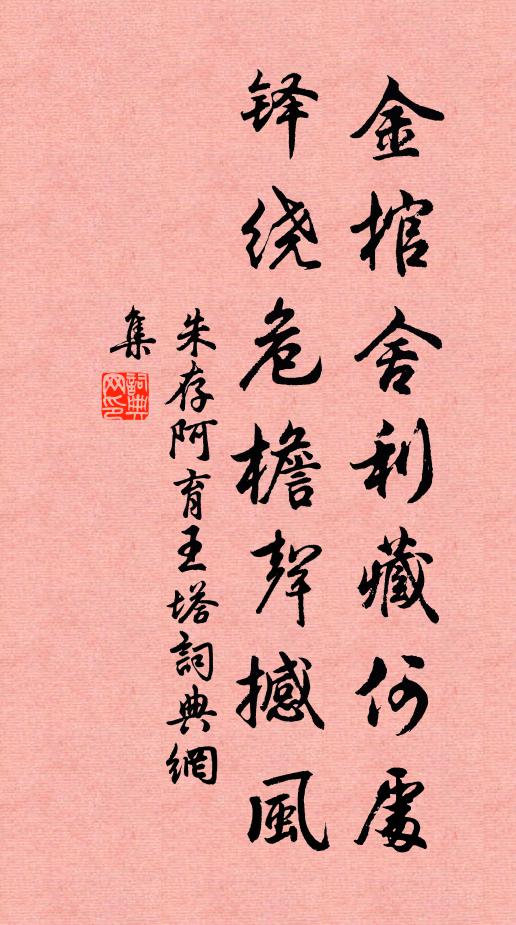 金棺舍利藏何處
铎绕危檐聲撼風
朱存阿育王塔詞典網
集
詞典
网印